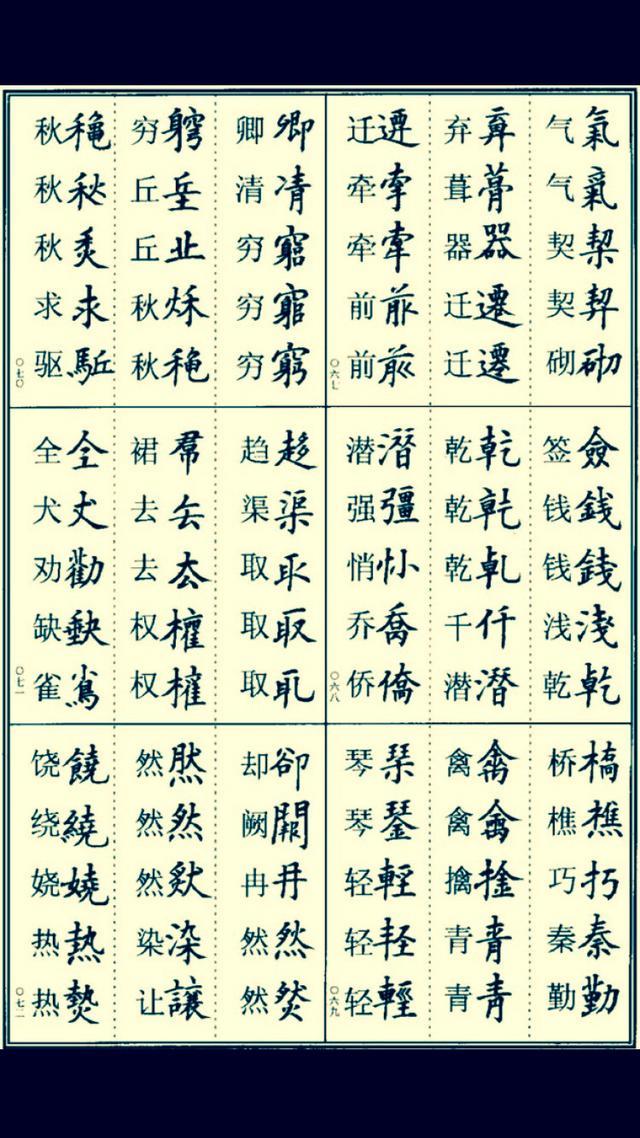 气氣气氣契契契契砌砌
弃弃葺葺器器迁遷迁遷
迁遷牵牵牵牽前前前前
〇六七
签僉钱錢钱錢浅淺乾乾
乾乾乾乾乾乹千仟潜潛
潜潛强彊悄悄乔喬侨僑
〇六八
桥橋樵樵巧巧秦秦勤勤
禽禽禽禽擒捦青青青青
琴琴琴琴轻輕轻軽轻輕
〇六九
卿卿清凊穷窮穷窮穷窮
穷竆丘丠丘丘秋秌秋穐
秋穐秋秋秋秌求求驱駈
〇七〇
趋趍渠渠取取取取取取
裙帬去厺去去权權权權
全全犬犬劝勸缺缺雀雀
〇七一
却卻阙闕冉冉然然然然
然然然然然然染染让讓
饶饒绕繞娆嬈热熱热熱
〇七二